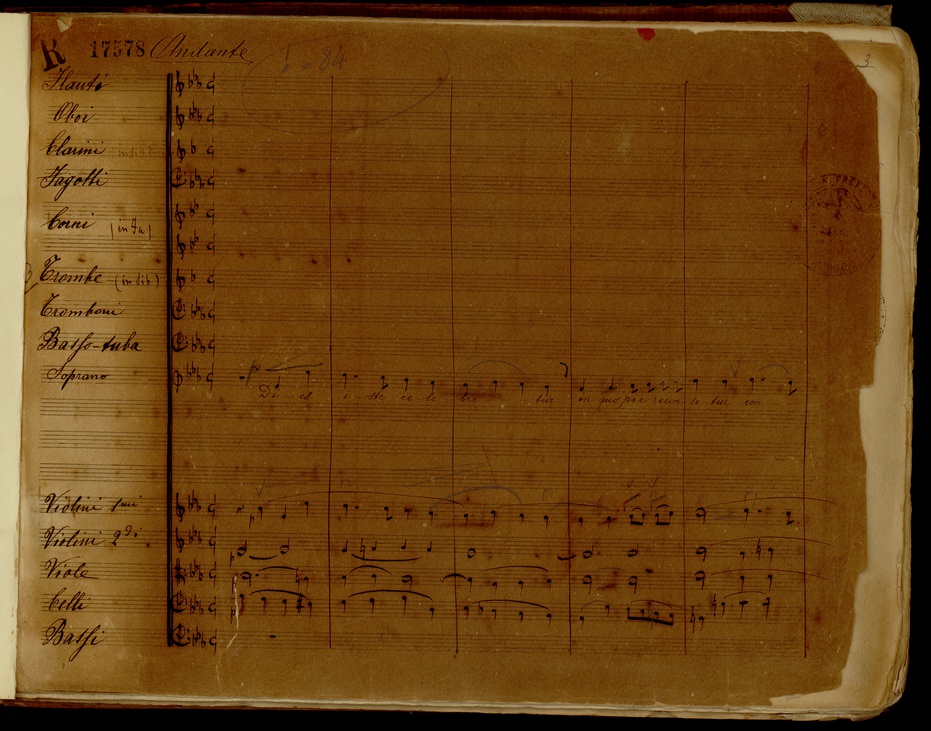 R 17578 Andante ♩ = 84
3
Flauti
Oboi
Clarini
Fagotti
Corni (in Fa)
Trombe (in sib)
Tromboni
Basso-tuba
Soprano
p
Di es i ste ce le bre tur in quo pie recen se tur con
Violini pmi
p
Violini 2di
p
Viole
p
Celli
p
Bassi